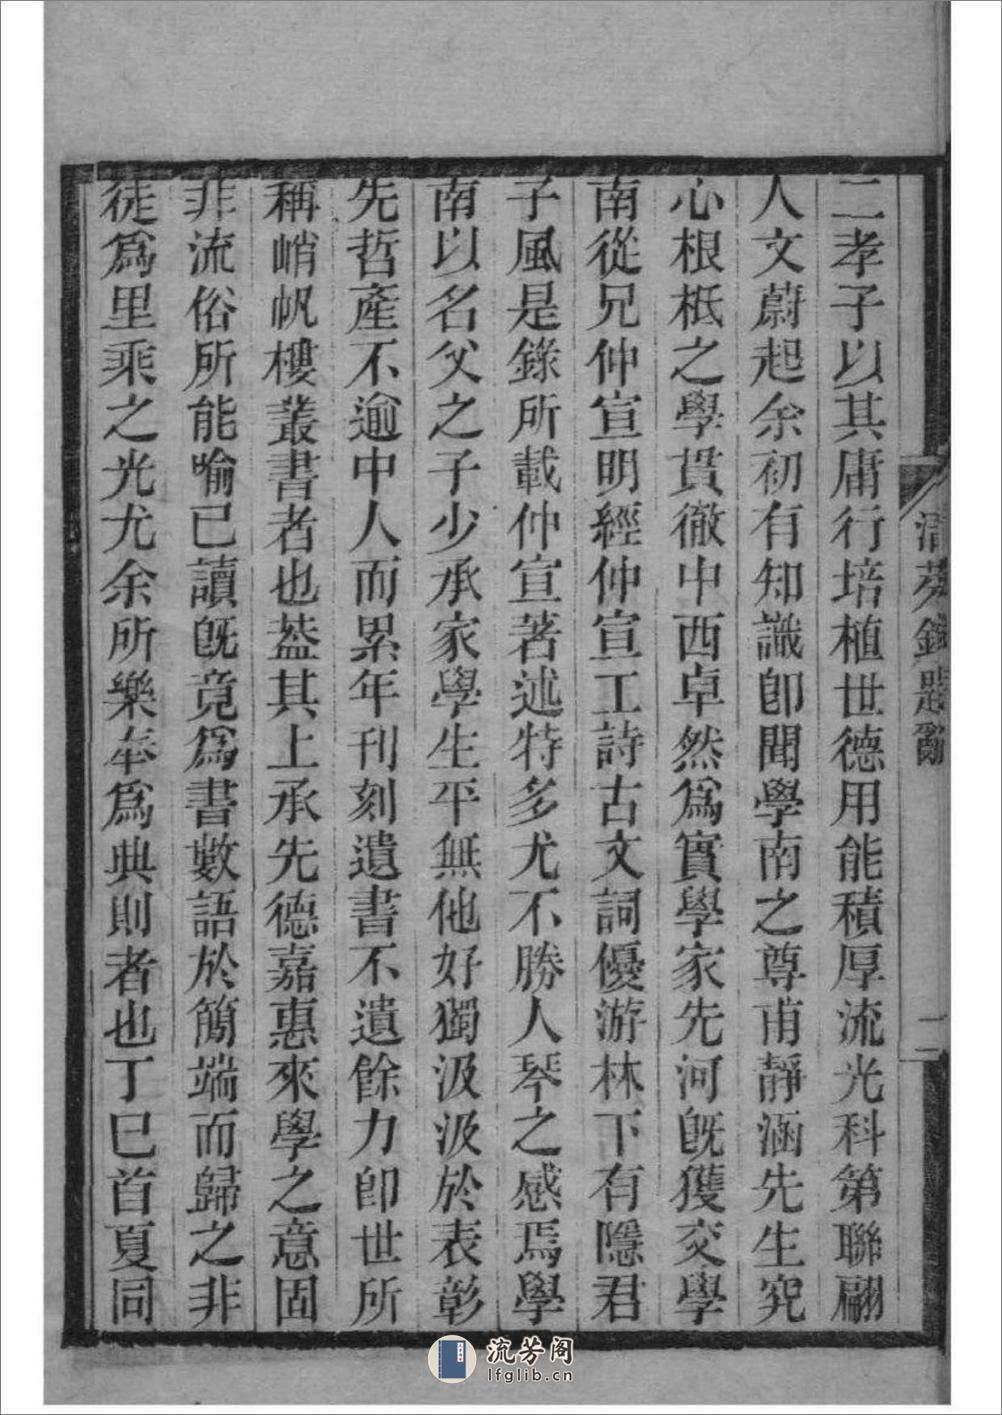 二孝子以其庸行培植世德用能積厚流光科第聯翩
人文蔚起余初有知識卽聞學南之尊甫靜涵先生究
心根柢之學貫徹中西卓然爲實學家先河旣獲交學
南從兄仲宣明經仲宣工詩古文詞優游林下有隱君
子風是錄所載仲宣著述特多尤不勝人琴之感焉學
南以名父之子少承家學生平無他好獨汲汲於表彰
先哲產不逾中人而累年刊刻遺書不遺餘力卽世所
稱峭帆樓叢書者也葢其上承先德嘉惠來學之意固
非流俗所能喻已讀旣竟爲書數語於簡端而歸之非
徒爲里乘之光尤余所樂奉爲典則者也丁巳首夏同
清芬錄題辭
二
流芳阁
lfglib.cn